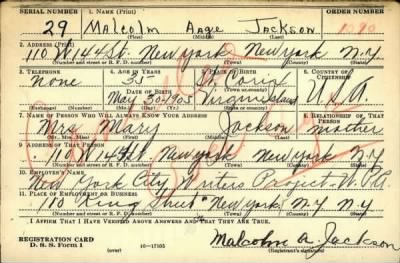 SERIAL NUMBER 1. NAME (Print) ORDER NUMBER
29 Malcolm Aage Jackson 1090
(First) (Middle) (Last)
2. ADDRESS (Print)
110 W. 144 St. New York New York N.Y.
(Number and street or R. F. D. number) (Town) (County) (State)
3. TELEPHONE 4. AGE IN YEARS 5. PLACE OF BIRTH 6. COUNTRY OF CITIZENSHIP
None 35 St. Croix
DATE OF BIRTH (Town or county)
May 30-1905 Virgin Island U.S.A.
(Exchange) (Number) (Mo.) (Day) (Yr.) (State or country)
7. NAME OF PERSON WHO WILL ALWAYS KNOW YOUR ADDRESS 8. RELATIONSHIP OF THAT PERSON
Mrs. Mary Jackson mother
(Mr., Mrs., Miss) (First) (Middle) (Last)
9. ADDRESS OF THAT PERSON
W 144 St New York New York N.Y.
(Number and street or R. F. D. number) (Town) (County) (State)
10. EMPLOYER'S NAME
New York City Writers Project-W.P.A.
11. PLACE OF EMPLOYMENT OR BUSINESS
110 King Street New York N.Y. N.Y.
(Number and street or R. F. D. number) (Town) (County) (State)
I AFFIRM THAT I HAVE VERIFIED ABOVE ANSWERS AND THAT THEY ARE TRUE.
REGISTRATION CARD
D. S. S. Form 1 (over) 16—17105 Malcolm A. Jackson